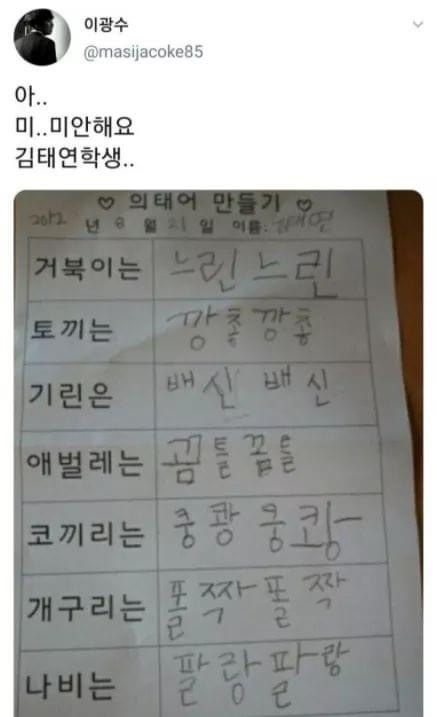 이광수
@masijacoke85
아..
미..미안해요
김태연학생..
♡ 의태어 만들기 ♡
2012 년 8 월 21 일 이름: 김태연
거북이는 느린느린
토끼는 깡충깡충
기린은 배신 배신
애벌레는 꿈틀꿈틀
코끼리는 쿵쾅쿵쾅
개구리는 폴짝폴짝
나비는 팔랑팔랑